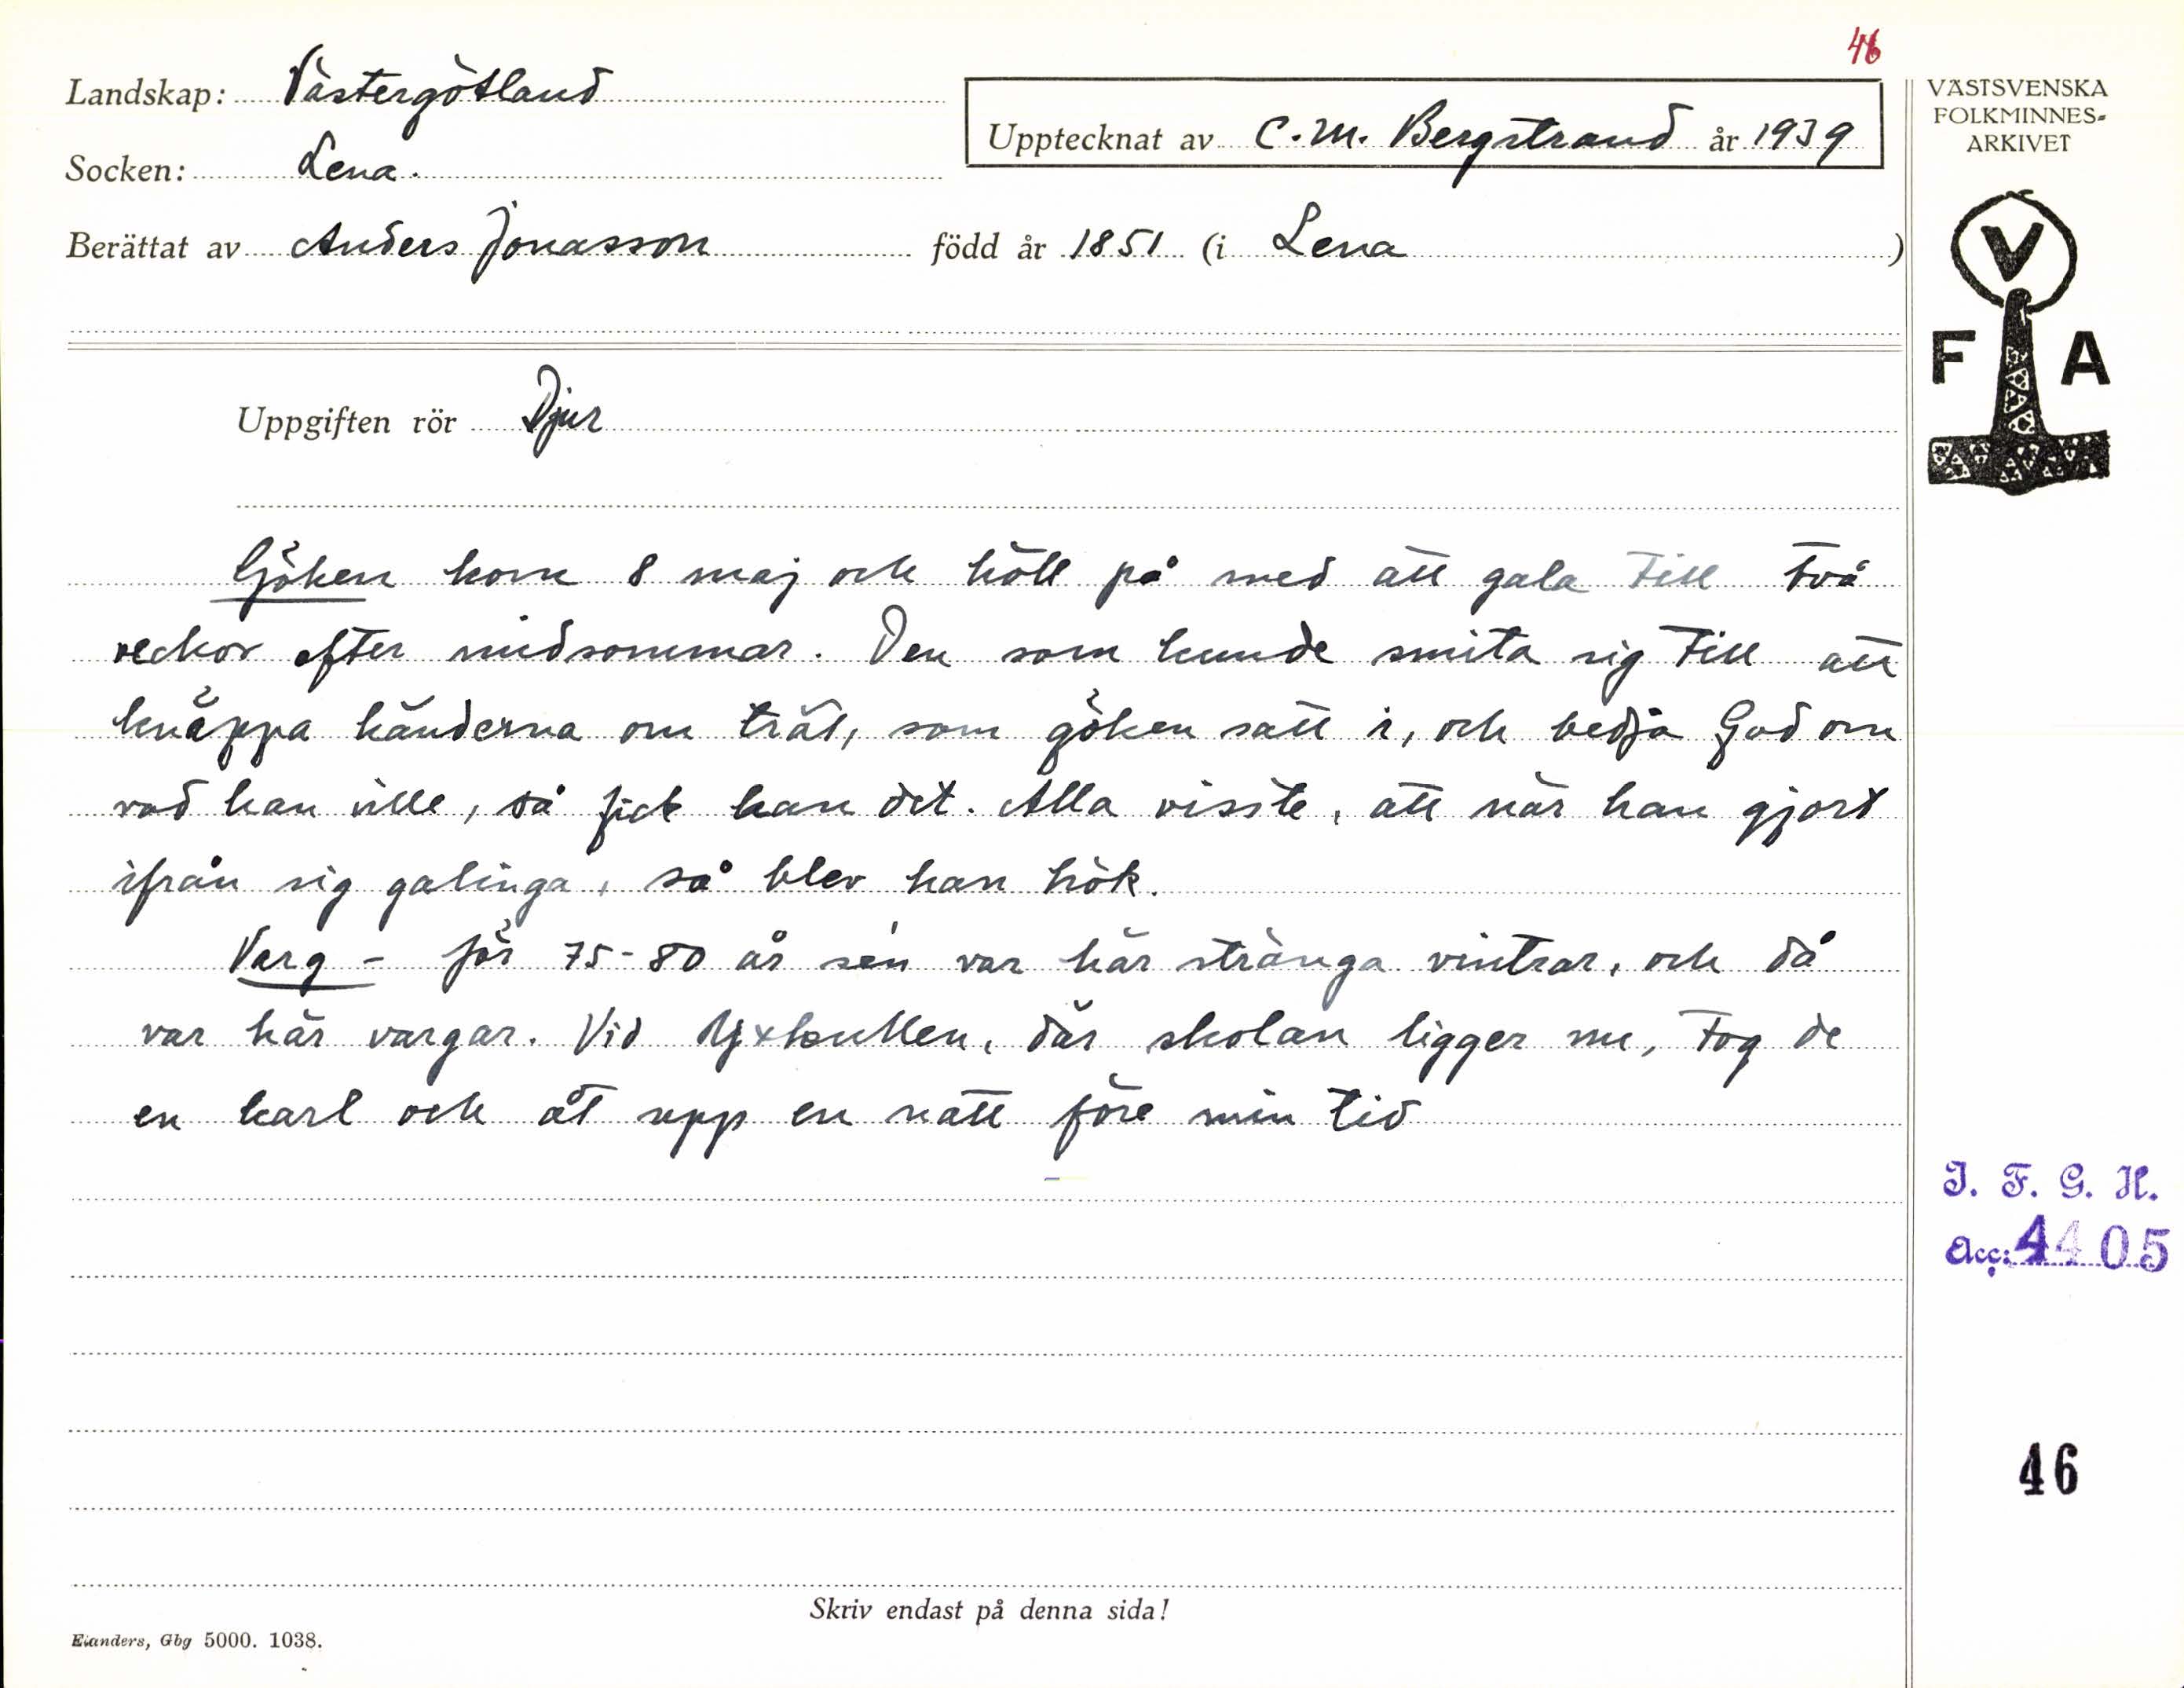 46
Landskap: Västergötland
Upptecknat av C. M. Bergstrand år 1939
Socken: Lena.
Berättat av Anders Jonasson född år 1851 (i Lena )
VÄSTSVENSKA
FOLKMINNES-
ARKIVET
V
F A
Uppgiften rör Djur
Göken kom 8 maj och höll på med att gala till två
veckor efter midsommar. Den som kunde smita sig till att
knäppa händerna om trät, som göken satt i, och bedja Gud om
vad han ville, så fick han det. Alla visste, att när han gjort
ifrån sig galinga, så blev han hök.
Varg - för 75-80 år sén var här stränga vintrar, och då
var här vargar. Vid där skolan ligger nu, tog de
en karl och åt upp en natt före min tid
I. F. G. H.
Acc: 4405
46
Skriv endast på denna sida!
Elanders, Gbg 5000. 1038.